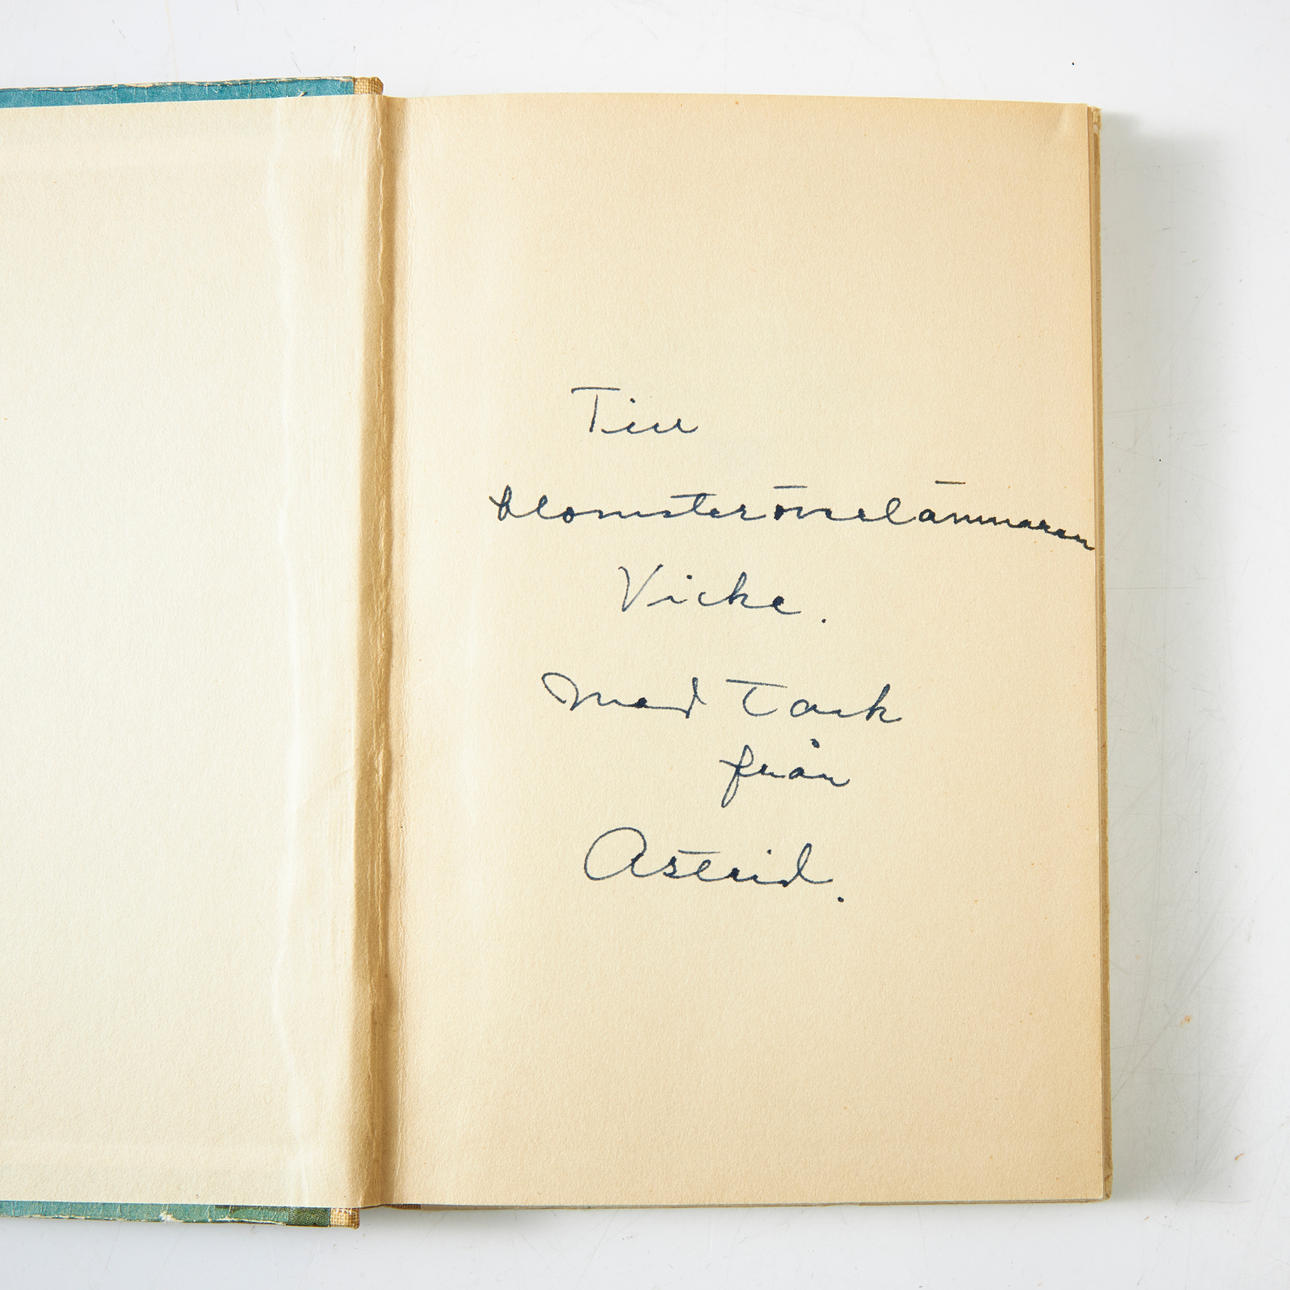 Till
blomsteröverlämnaren
Vicke.
Med Tack
från
Astrid.